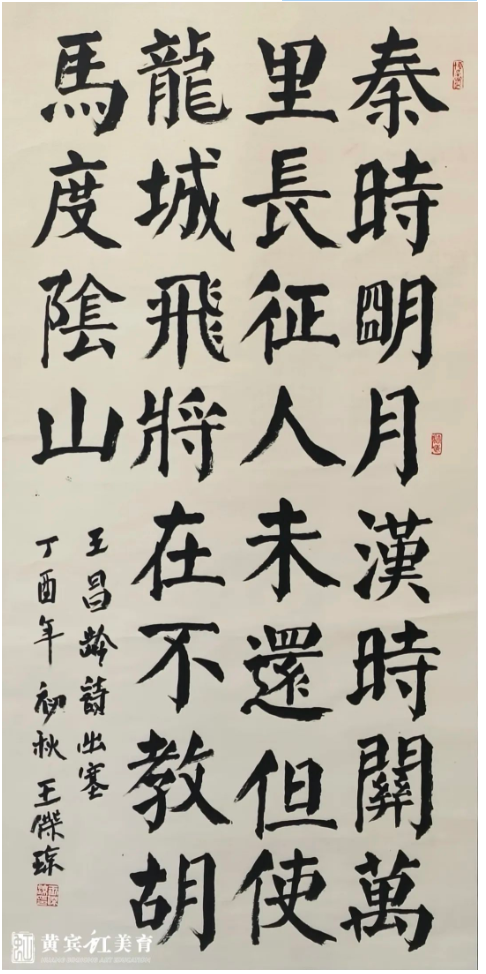 秦時明月漢時關萬
里長征人未還但使
龍城飛將在不教胡
馬度陰山
王昌齡詩出塞
丁酉年初秋王傑琼
黄宾虹美育